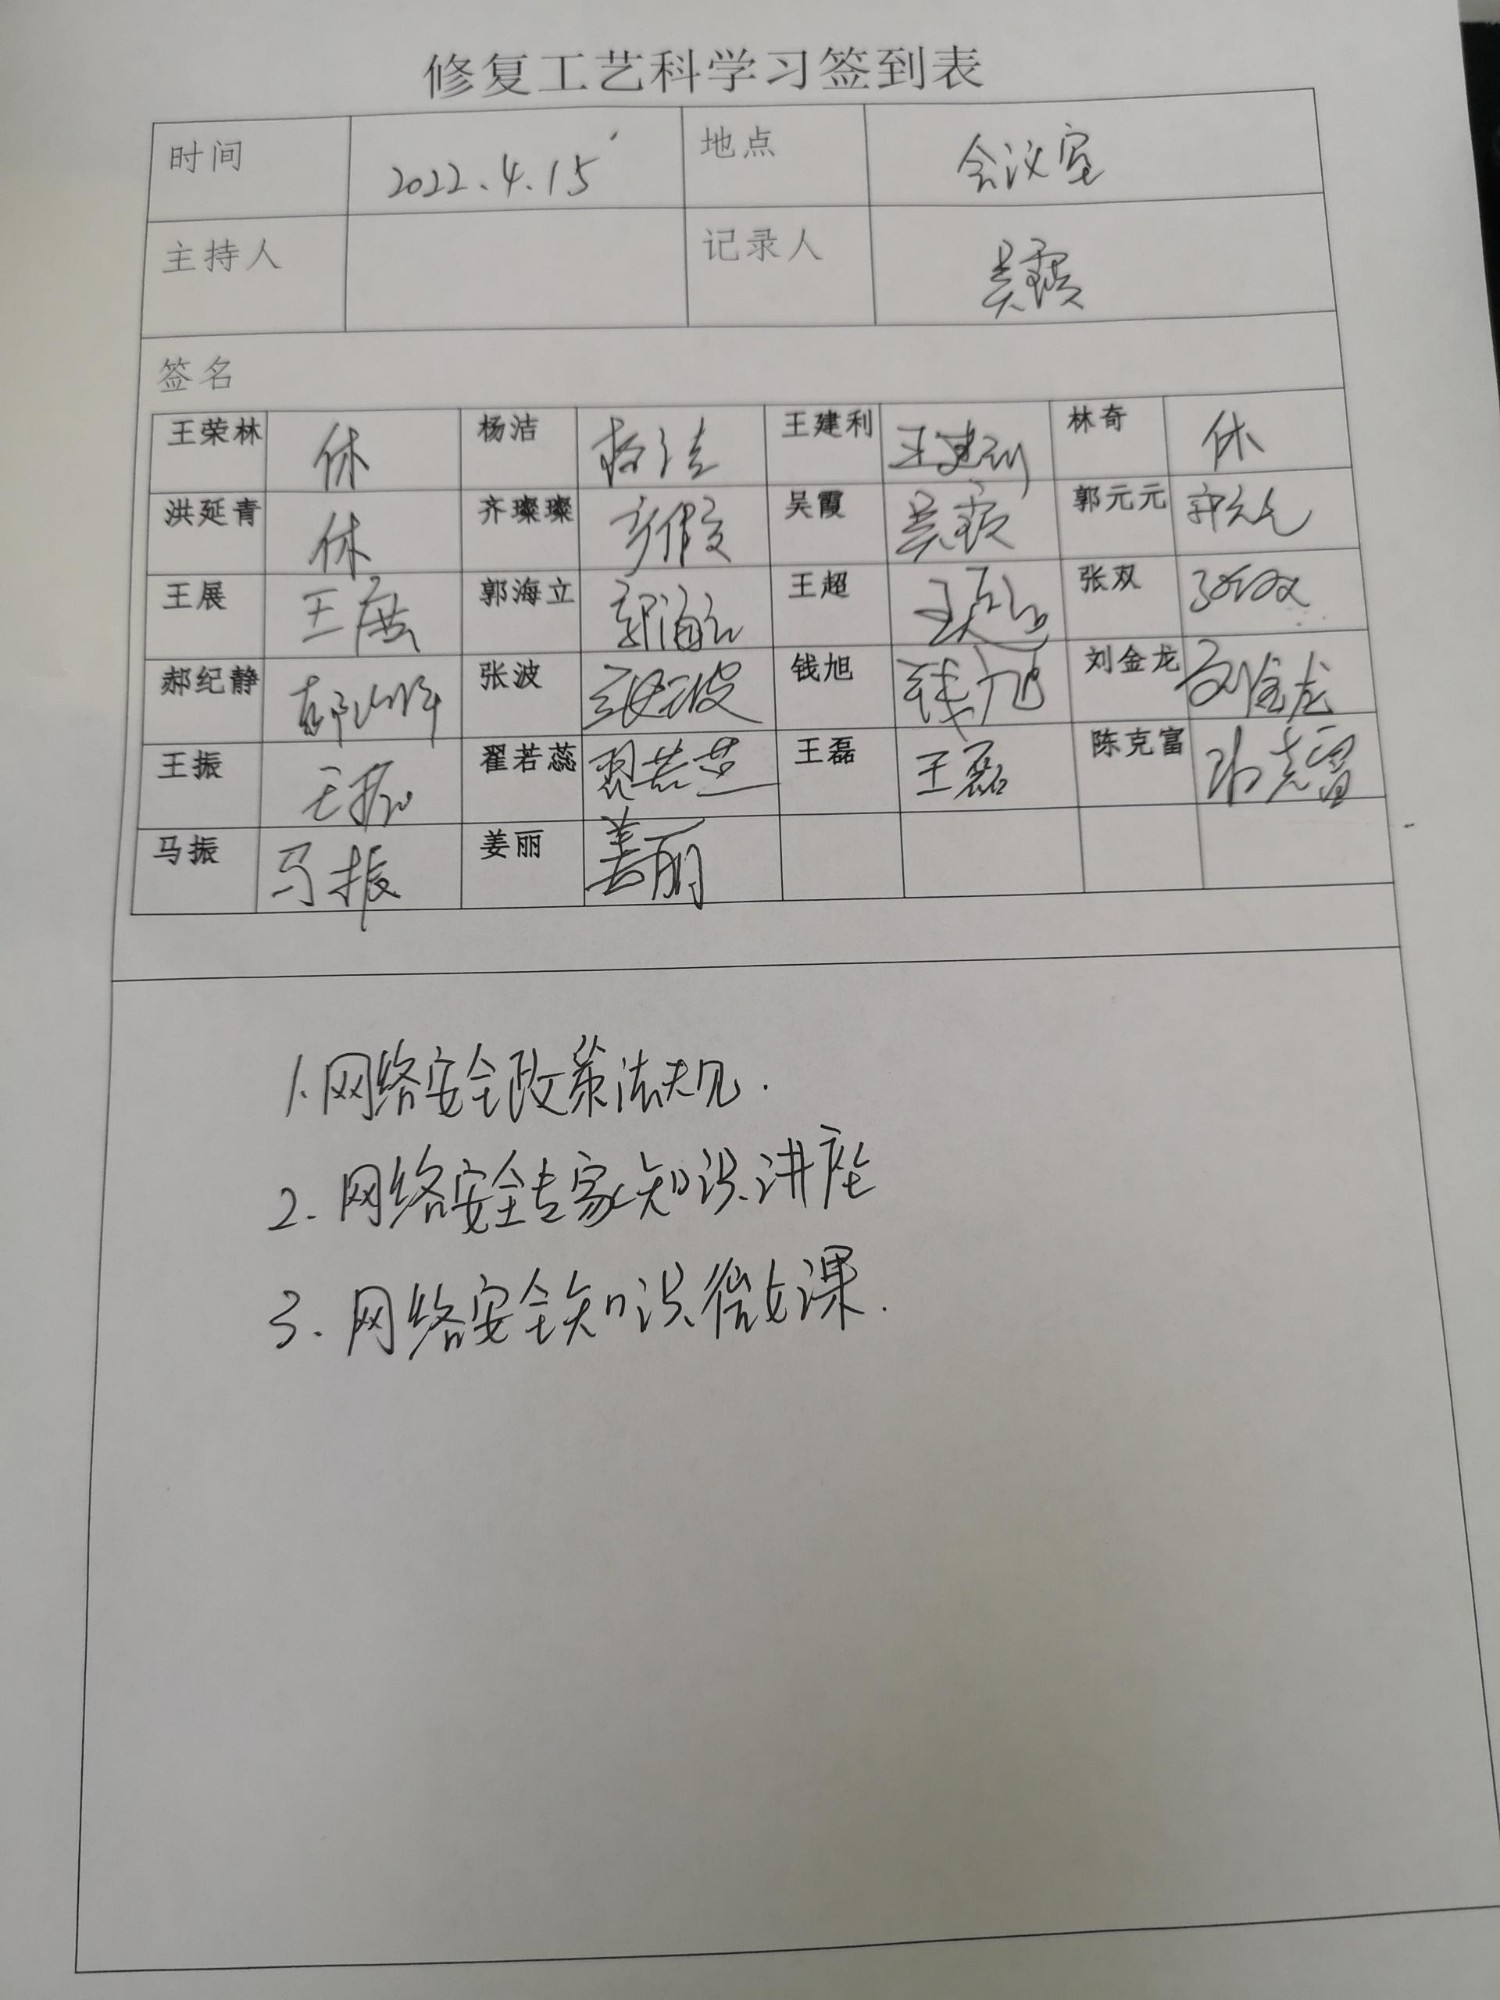 修复工艺科学习签到表
时间 2022.4.15 地点 会议室
主持人 记录人 吴霞
签名
王荣林 休 杨洁 杨洁 王建利 王建利 林奇 休
洪延青 休 齐璨璨 吴霞 吴霞 郭元元 郭元元
王展 王展 郭海立 郭海立 王超 王超 张双 张双
郝纪静 郝纪静 张波 张波 钱旭 钱旭 刘金龙 刘金龙
王振 王振 翟若蕊 翟若蕊 王磊 王磊 陈克富 陈克富
马振 马振 姜丽 姜丽
1.网络安全政策法规.
2.网络安全专家知识讲座
3.网络安全知识微课.